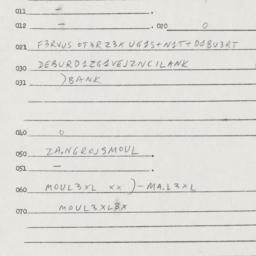 011 – .
012 – . 020 0
021 F3RVUS OT3RZ3X UG1S+N1T+D0BU3RT
030 DEBURD1ZG1VEJZNCILANK
031 )BANK
040 0
050 ZA,NGROJSMOUL .
051 – .
060 MOUL3XL XX )-MA,L3XL
070 MOUL3XL3X